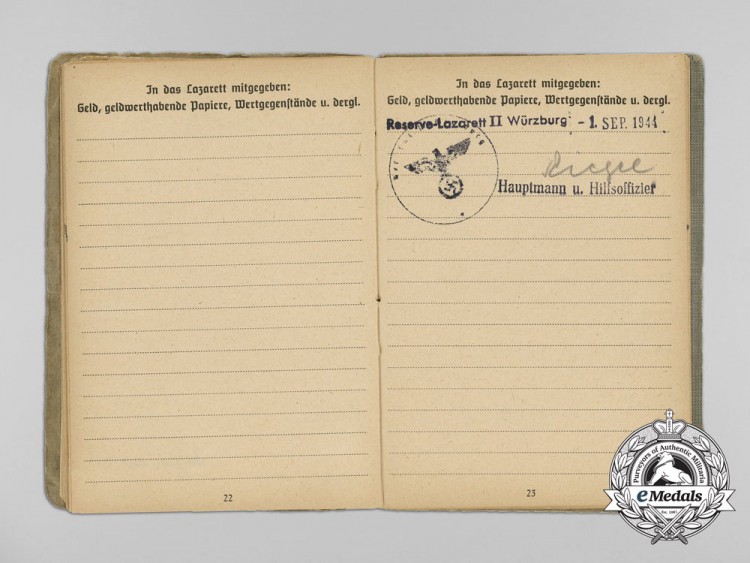 In das Lazarett mitgegeben:
Geld, geldwerthabende Papiere, Wertgegenstände u. dergl.
22
In das Lazarett mitgegeben:
Geld, geldwerthabende Papiere, Wertgegenstände u. dergl.
Reserve-Lazarett II Würzburg - 1. SEP. 1944
Hauptmann u. Hilfsoffizier
23
Purveyors of Authentic Militaria
eMedals